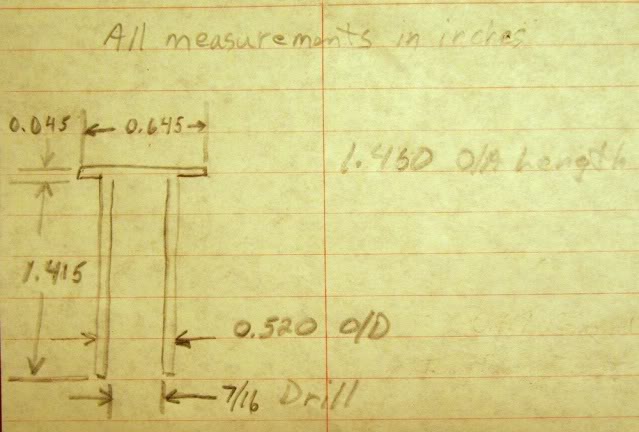 All measurements in inches
0.045
0.645
1.450 O/A Length
1.415
0.520 O/D
7/16 Drill